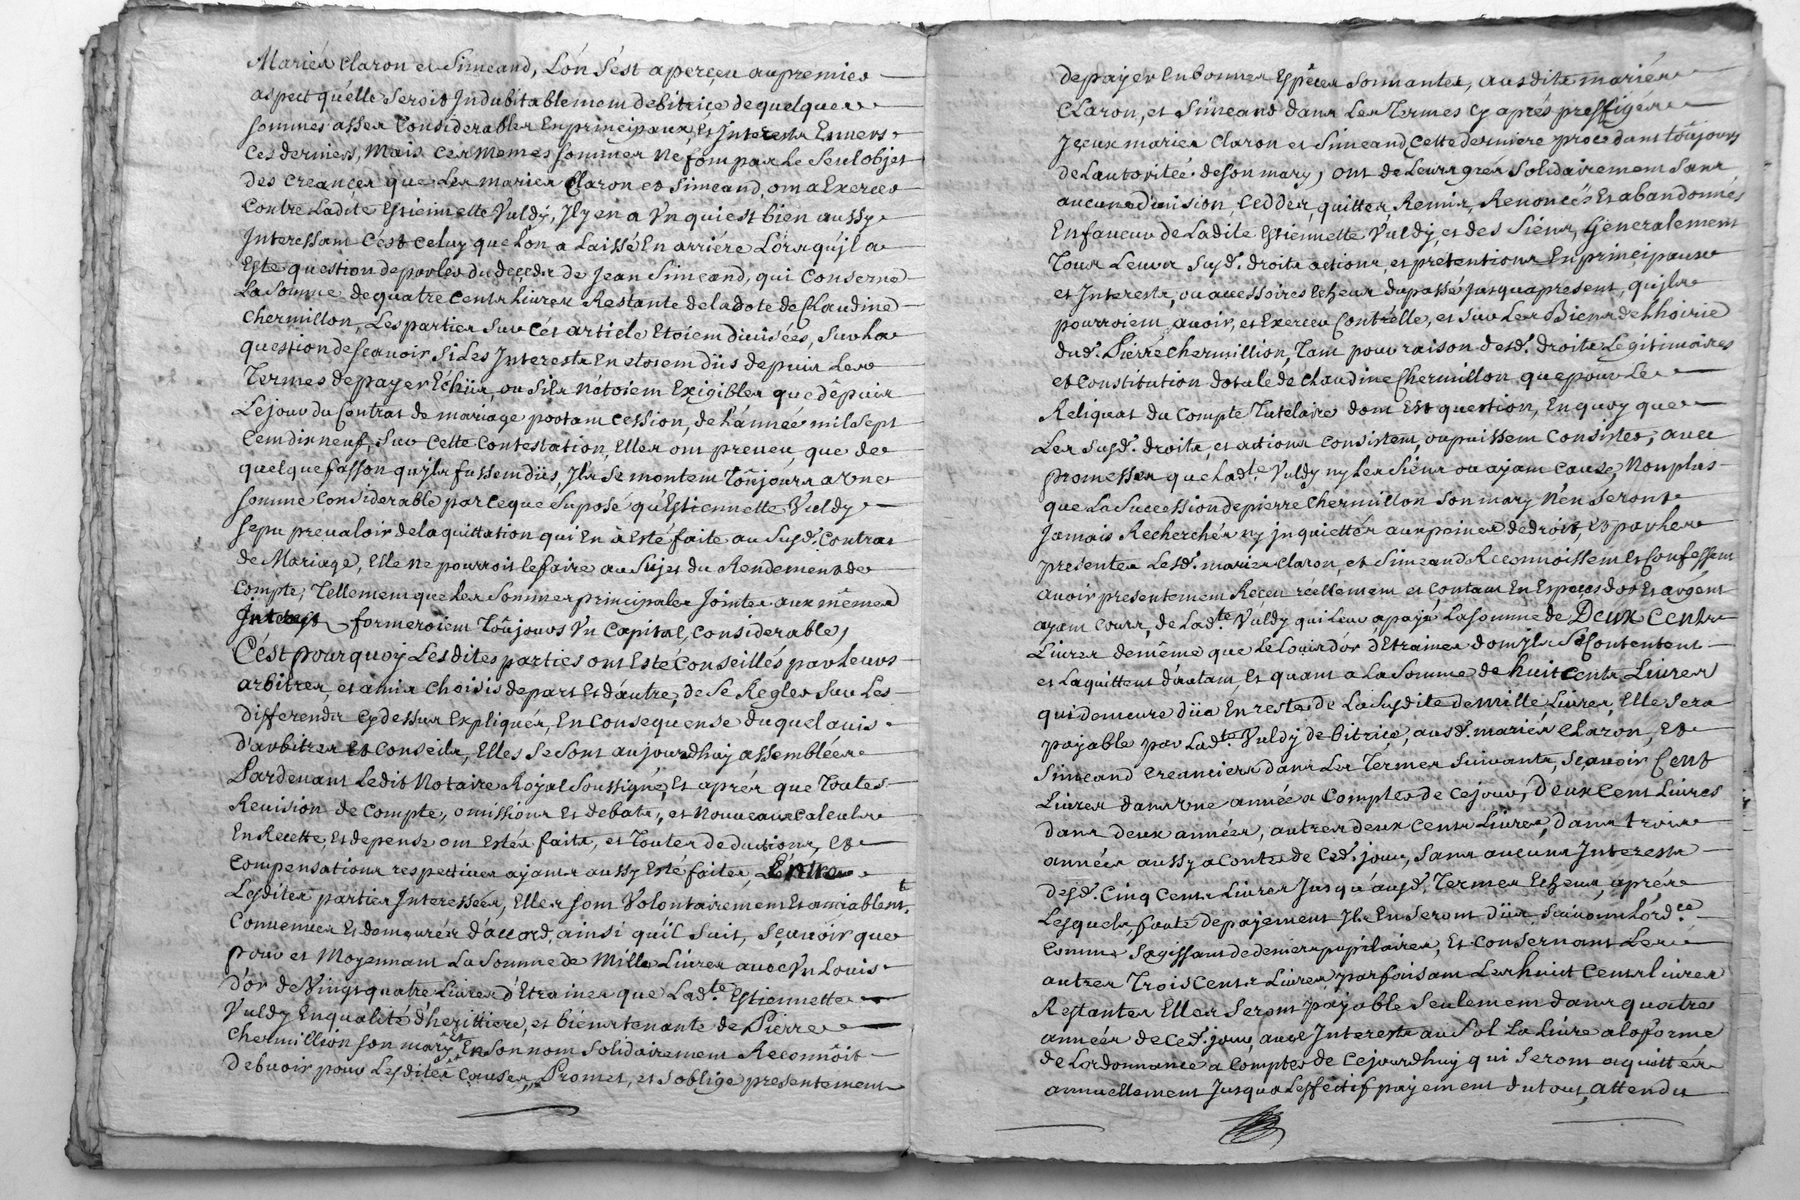 Mariés Claron et Simeand, L'on s'est aperçeu au premier
aspect qu'elle seroit Indubitablement debitrice de quelques
sommes assez Considerables En principaux Et Interests Envers
Ces derniers, Mais ces memes sommes ne font pas Le seul objet
des creances que Les mariés Claron et Simeand, ont a Exercer
Contre Ladite Estiennette Vuldy, Il y en a Un qui est bien aussy
Interessant C'est celuy que L'on a Laissé En arriére Lors qu'jl a
Este question de parler du deceds de Jean Simeand, qui Conserne
La somme de quatre cents Livres Restante de la dote de Claudine
Chermillon, Les parties sur cét article Etoient divisées, sur La
question de scavoir si Les Interests En etoient dûs depuis Les
Termes de payer Echûs, ou s'ils n'etoient Exigibles que depuis
Le jour du Contrat de mariage portant Cession, de L'année mil sept
Cent dix neuf, sur cette Contestation, Elles ont preveu, que de
quelque fasson qu'jls fussent dûs, Ils se montent Toûjours a Une
somme Considerable parceque suposé qu'Estiennette Vuldy
se pu prevaloir de la quittation qui En à Esté faite au susd. Contrat
de Mariage, Elle ne pourroit le faire au sujet du Rendement de
Compte, Tellement que Les sommes principales Jointes aux mêmes
Interests formeroient Toûjours Un Capital, Considerable,
C'ést pourquoy Lesdites parties ont Esté Conseillés par Leurs
arbitres, et amis choisis de part Et d'autre, de se Regler sur Les
differends cy dessus Expliqués, En Consequense du quel avis
D'arbitres et Conseils, Elles se sont aujourdhuy assemblées
Pardevant Ledit Notaire Royal soussigné, Et aprés que Toutes
Revision de Compte, omissions Et debats, et nouveaux calculs
En Recette, Et depense ont Estés faits, et Toutes deductions, Et
Compensations respectives ayants aussy Esté faites, Entre
Lesdites parties Interessées, Elles sont Volontairement Et amiablemt.
Convenues Et demeurés d'accord, ainsi qu'il suit, scavoir que
pour et Moyennant La somme de Mille Livres avec Un Louis
d'or de Vingt quatre Livres d'Etraines que Ladte. Estiennette
Vuldy En qualité d'herittiere, et bienstenante de Pierre
Chermillion son mary, et En son nom solidairement Reconnoit
Debvoir pour Lesdites Causes, Promet, et s'oblige presentement
de payer En bonnes Espéces sonnantes, ausdits mariés
Claron, et Simeand dans Les Termes cy aprés preffigés
Jceux mariés Claron et Simeand Cette derniere procedant toûjours
de L'autoritée de son mary, ont de Leurs grés solidairement sans
aucune division, Cedder, quitter, Remis, Renoncés Et abandonnés
En faveur de Ladite Estiennette Vuldy, et des Siens, Generalement
Tous Leurs susd. droits actions, et pretentions En principaux
et Interests, ou accessoires Echeus du passé jusqu'apresent, qu'jls
pourroient, avoir, et Exercer Contr'elle, et sur Les Biens de Lhoirie
dud. Pierre Chermillion, Tant pour raison desd. droits Legitimaires
et Constitution dotale de Claudine Chermillon que pour Le
Reliquat du Compte Tutelaire dont Est question, En quoy que
Les susd. droits, et actions Consistent, ou puissent Consister, avec
promesses que Ladte. Vuldy ny Les Siens ou ayant cause, Non plus
que La succession de pierre Chermillon son mary n'en seront
Jamais Recherchés ny jnquiettés aux peines de droit, Et par Les
presentes Lesd. mariés Claron, et Simeand Reconnoissent Et Confessent
avoir presentement Receu réellement et Contant En Especes d'or Et argent
ayant Cours, de Ladte. Vuldy qui Leur a payé La somme de Deux Cents
Livres de même que Le Louis d'or d'Etraines dont jls Se Contentent
et La quittent d'autant, Et quant a La somme de huit Cents Livres
qui demeure düe En reste de La susdite de mille Livres, Elle sera
payable par Ladte. Vuldy debitrice, ausd. mariés Claron, Et
Simeand Creanciers dans Les Termes suivants, Scavoir Cent
Livres dans Une année a Compter de ce jour, Deux Cent Livres
dans deux années, autres deux Cents Livres, dans trois
années aussy a Conter de Ced. jour, sans aucuns Interests
desd. Cinq Cents Livres Jusqu'ausd. Termes Echeus, aprés
Lesquels faute de payement Ils En seront düs suivant L'ordce.
Comme s'agissant de deniers pupilaires, Et Consernant Les
autres Trois Cents Livres, parfaisant Les huit Cents Livres
Restantes Elles seront payable seulement dans quatres
années de Ced. jour avec Interests au sol La Livre a la forme
de L'ordonnance a Compter de Cejourdhuy qui seront aquittés
annuellement Jusqu'a L'effectif payement du tout, attendu